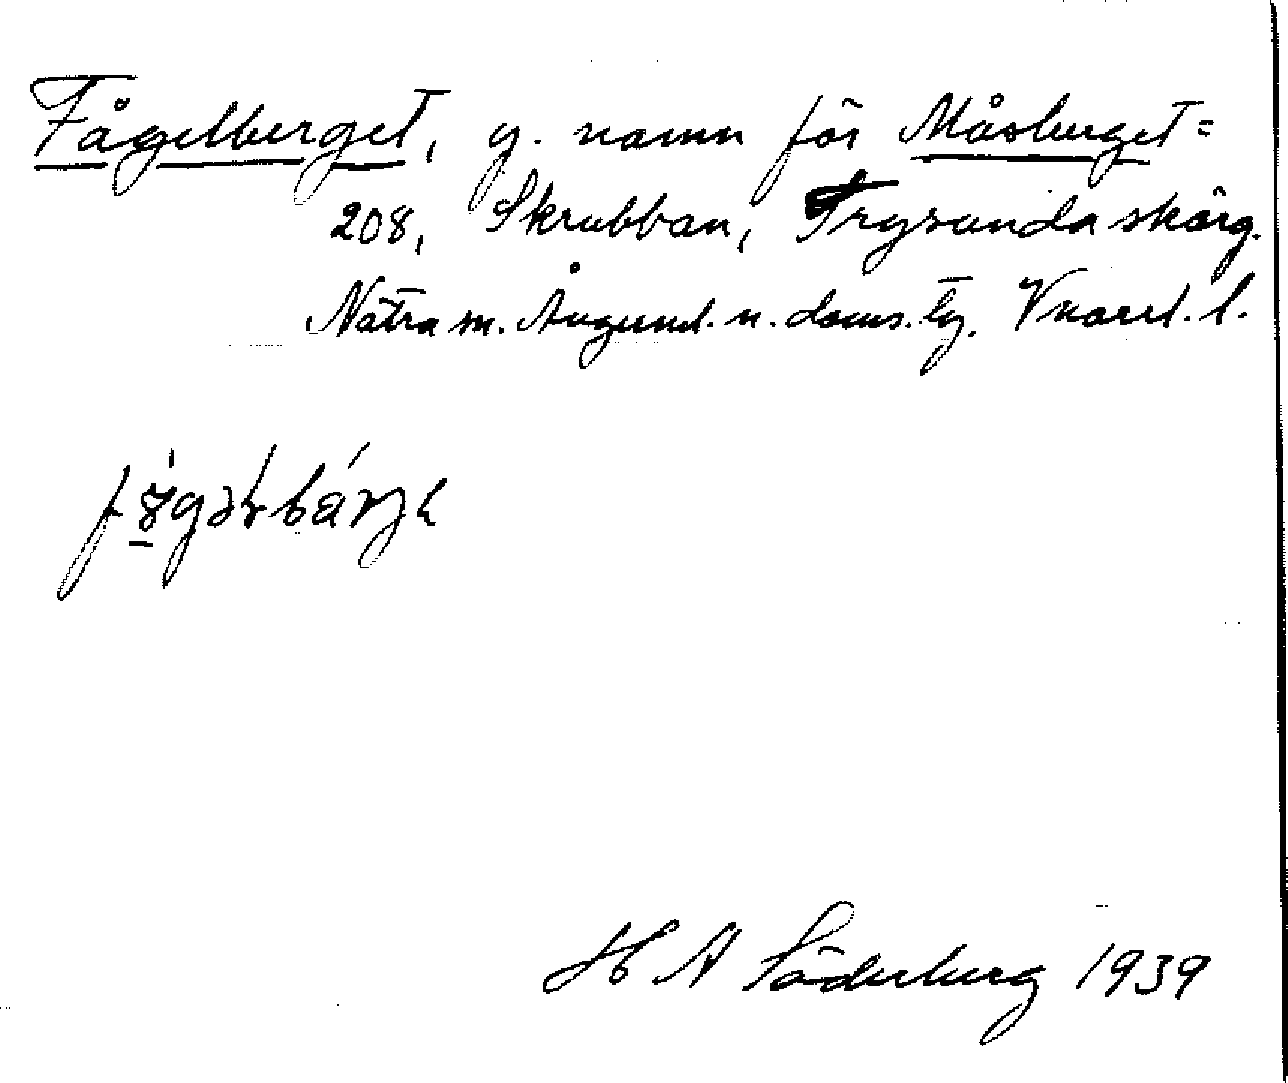 Fågelberget, g. namn för Måsberget =
208, Skrubban, Trysunda skärg.
Nätra m. Ångerml. n. doms. lg. Vnorrl. l.
H A Söderberg 1939